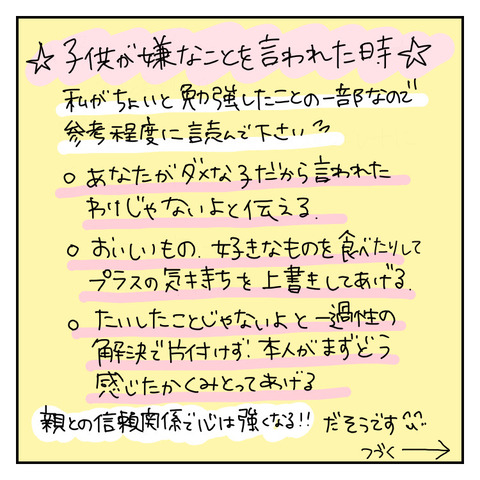 ☆子供が嫌なことを言われた時☆
私がちょいと勉強したことの一部なので
参考程度に読んで下さい
○ あなたがダメな子だから言われた
わけじゃないよと伝える.
○ おいしいもの.好きなものを食べたりして
プラスの気持ちを上書きしてあげる.
○ たいしたことじゃないよと一過性の
解決で片付けず.本人がまずどう
感じたかくみとってあげる
親との信頼関係で心は強くなる!! だそうです
つづく→